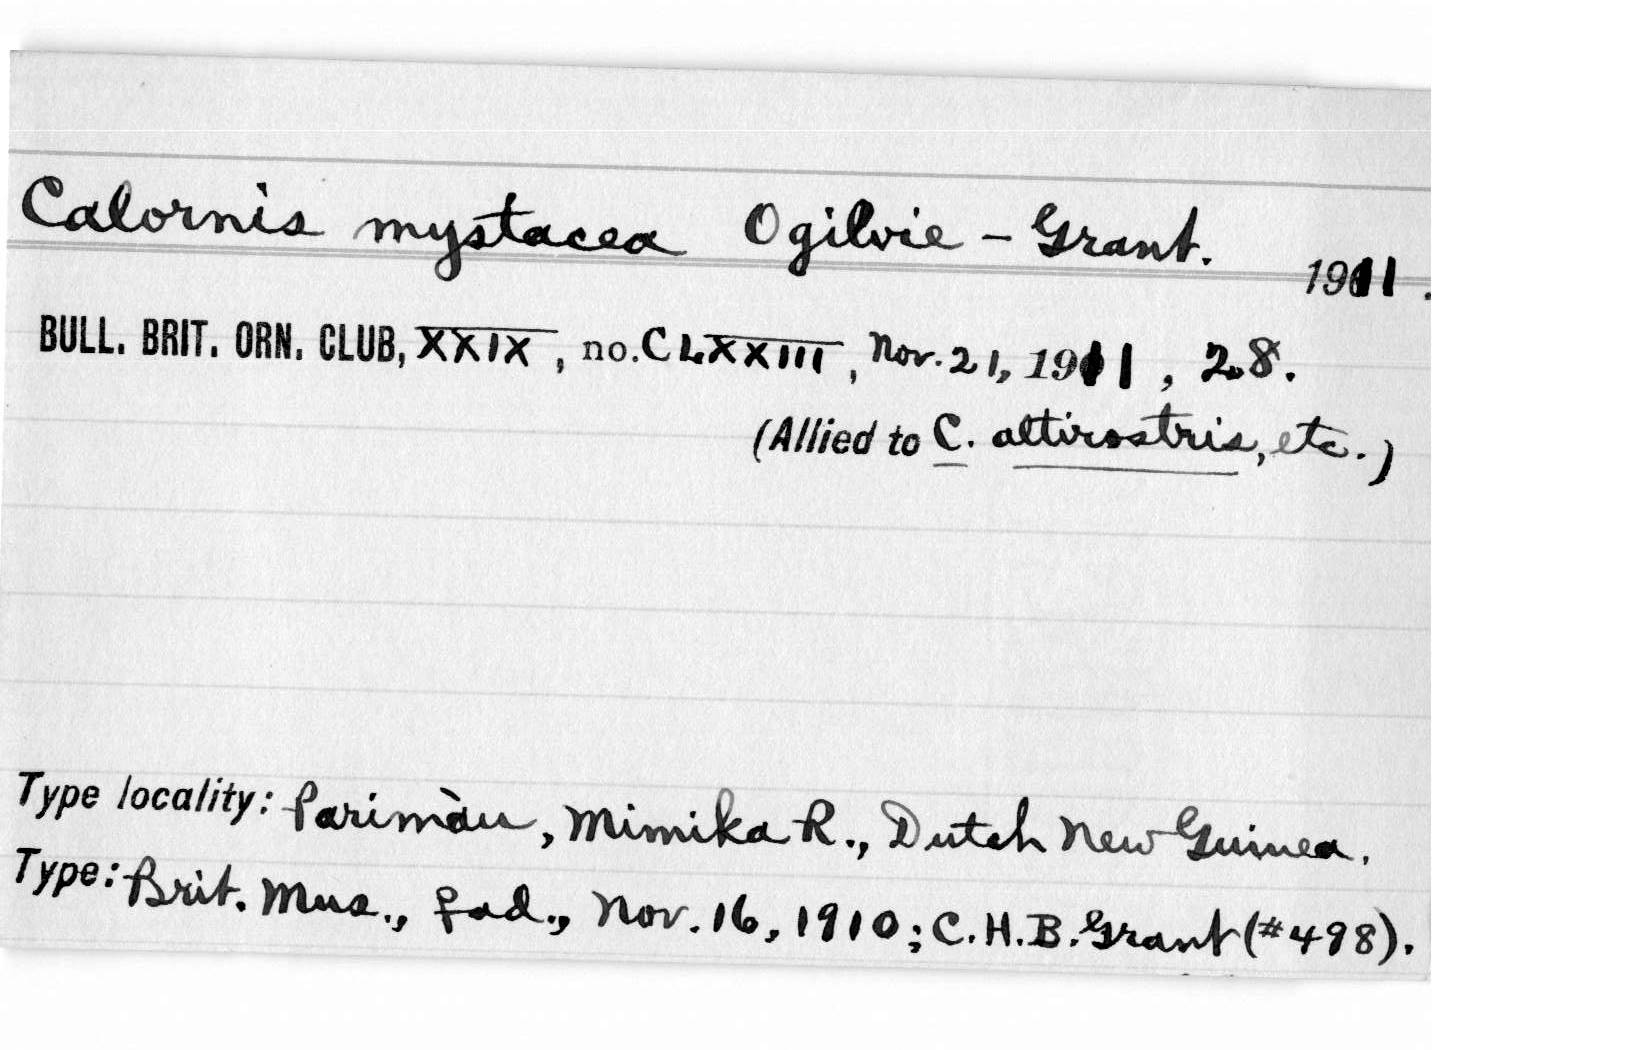 Calornis mystacea Ogilvie-Grant. 1911.
BULL. BRIT. ORN. CLUB, XXIX, no. CLXXIII, Nov. 21, 1911, 28.
(Allied to C. altirostris, etc.)
Type locality: Parimàu, Mimika R., Dutch New Guinea.
Type: Brit. Mus., ♀ad., Nov. 16, 1910; C.H.B. Grant (#498).